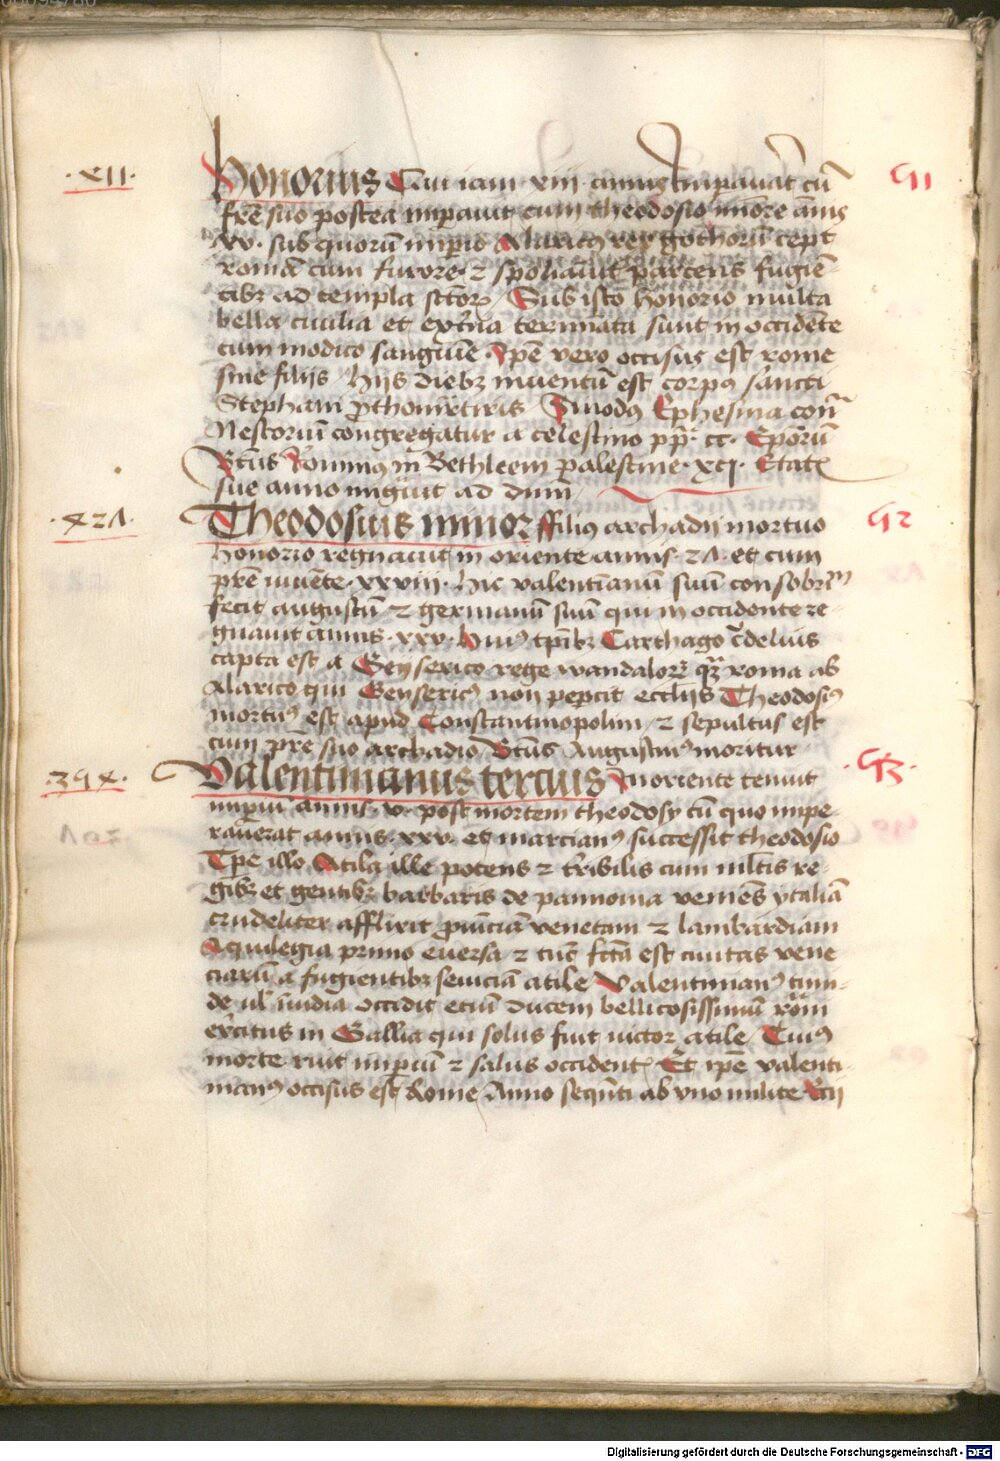 ·XII· Honorius Cum iam xiii annis imperauerat cum 51
fratre suo postea imperauit cum theodosio minore annis
xv. sub quorum imperio Alaricus rex gothorum cepit
romam cum furore et spoliauit parcens fugien
tibus ad templa sanctorum Sub isto honorio multa
bella ciuilia et externa terminata sunt in occidente
cum modico sanguine. Ipse vero occisus est rome
sine filiis hijs diebus inuentum est corpus sancti
Stephani prothomartiris Sinodus Ephesina contra
Nestorium congregatur a celestino papa cc. Episcoporum
in Bethleem palestine. xcj. Etatis
sue anno migrauit ad dominum
·421· Theodosius minor ffilius archadii mortuo 52
honorio regnauit in oriente annis. 21. et cum
patre iuuente. xxviii. hic valentianum suum consobrinum
fecit augustum et germanum suum qui in occidente re
gnauit annis. xxv. huius temporibus Carthago crudelius
capta est a Genserico rege wandalorum quam roma ab
Alarico qui Gensericus non pepercit ecclesiis Theodosius
mortuus est apud Constantinopolim et sepultus est
cum patre suo archadio Beatus Augustinus moritur
Valentinianus tercius In oriente tenuit 53
imperium annis. v. post mortem theodosy cum quo impe
rauerat annis. xxv. et marcianus successit theodosio
Tempore illo Atila ille potens et terribilis cum multis re
gibus et gentibus barbaris de pannonia veniens ytaliam
crudeliter afflixit prouinciam venetam et lambardiam
Aquilegia primo euersa et tunc facta est ciuitas vene
ciarum a fugientibus seuiciam atile Valentinianus
inuidia occidit ducem bellicosissimum
exercitus in Gallia qui solus fuit victor atile Cuius
morte ruit imperium et salus occidentis Et ipse valenti
nianus occisus est Rome Anno sequenti ab vno milite
Digitalisierung gefördert durch die Deutsche Forschungsgemeinschaft - DFG